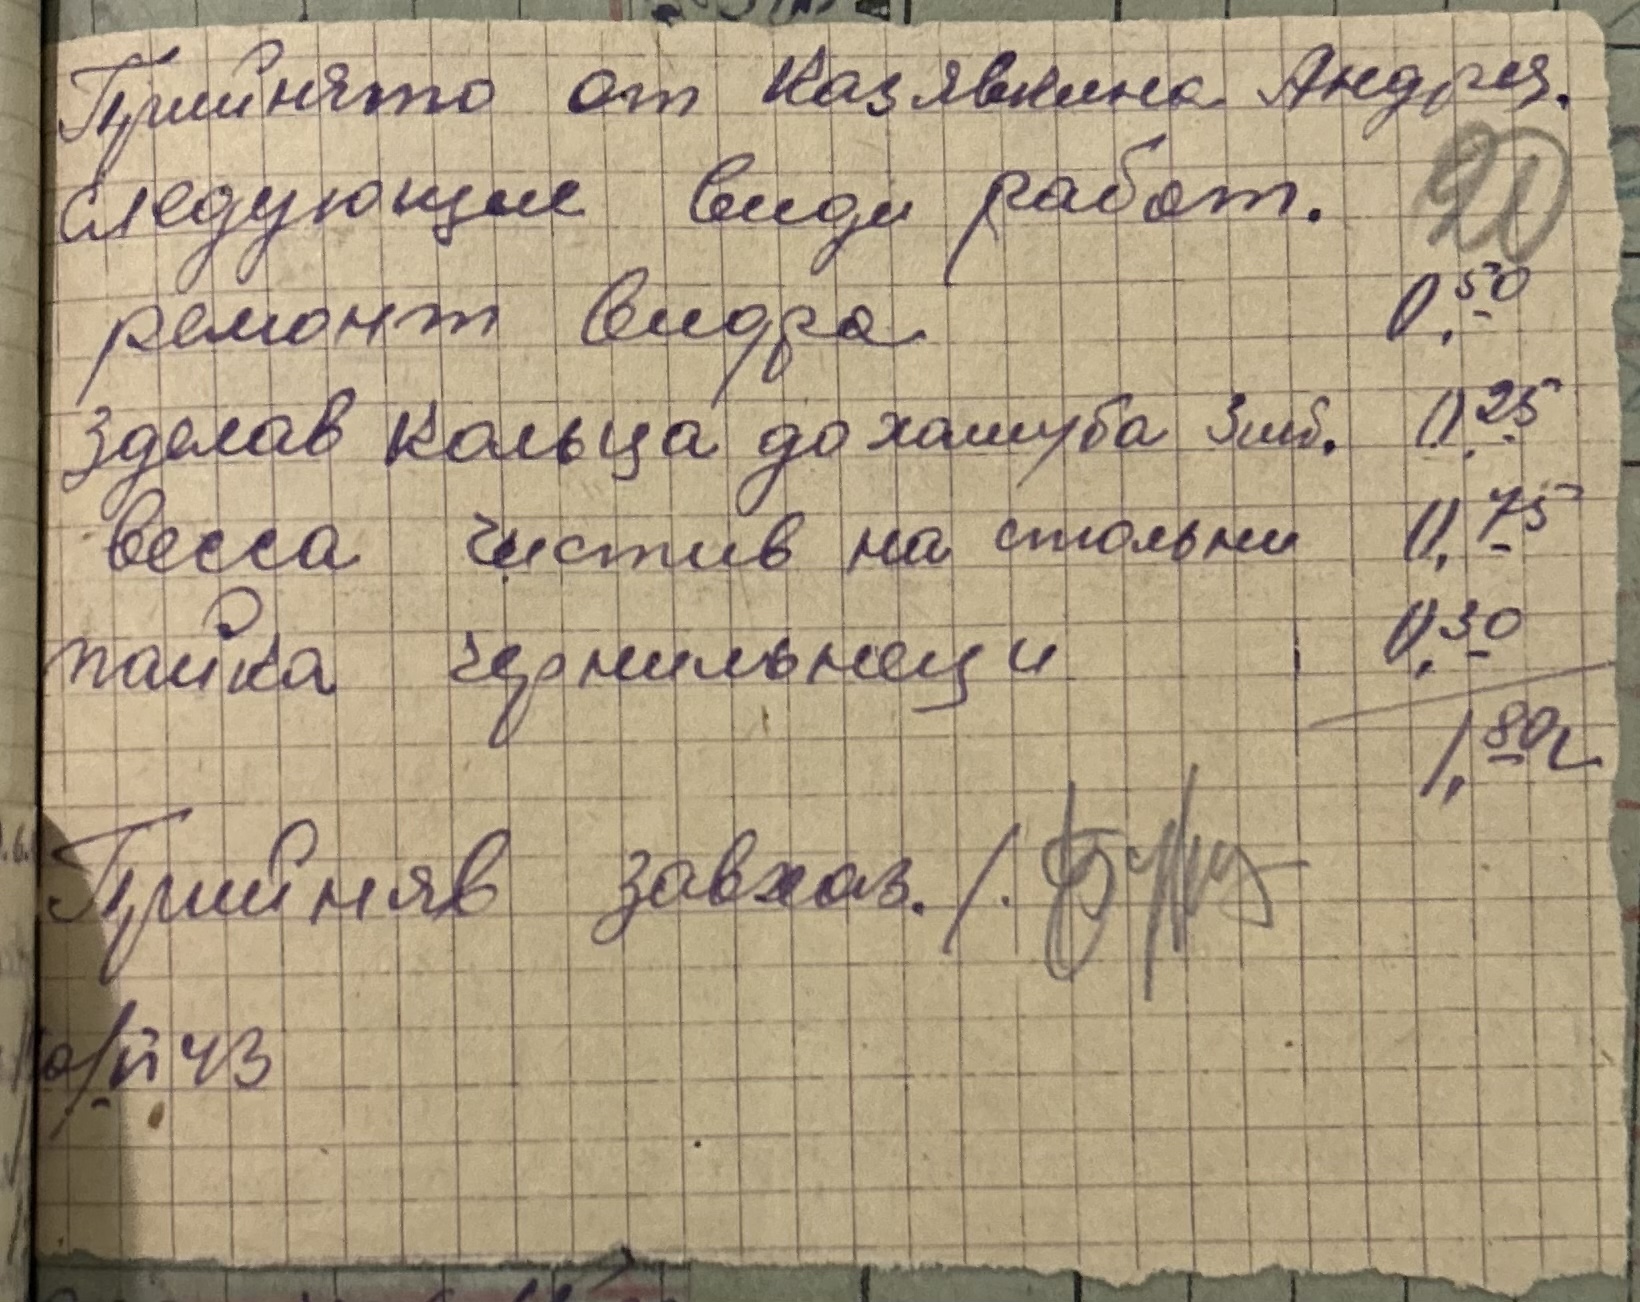 Прийнято от Казявкина Андрея.
следующие види работ.
20
ремонт видра 0,50
зделав кольца до хамута 3 шт. 0,25
весса чистив на стольни 0,75
пайка чернильнеци 0,30
1,80
Прийняв завхоз. /.
43